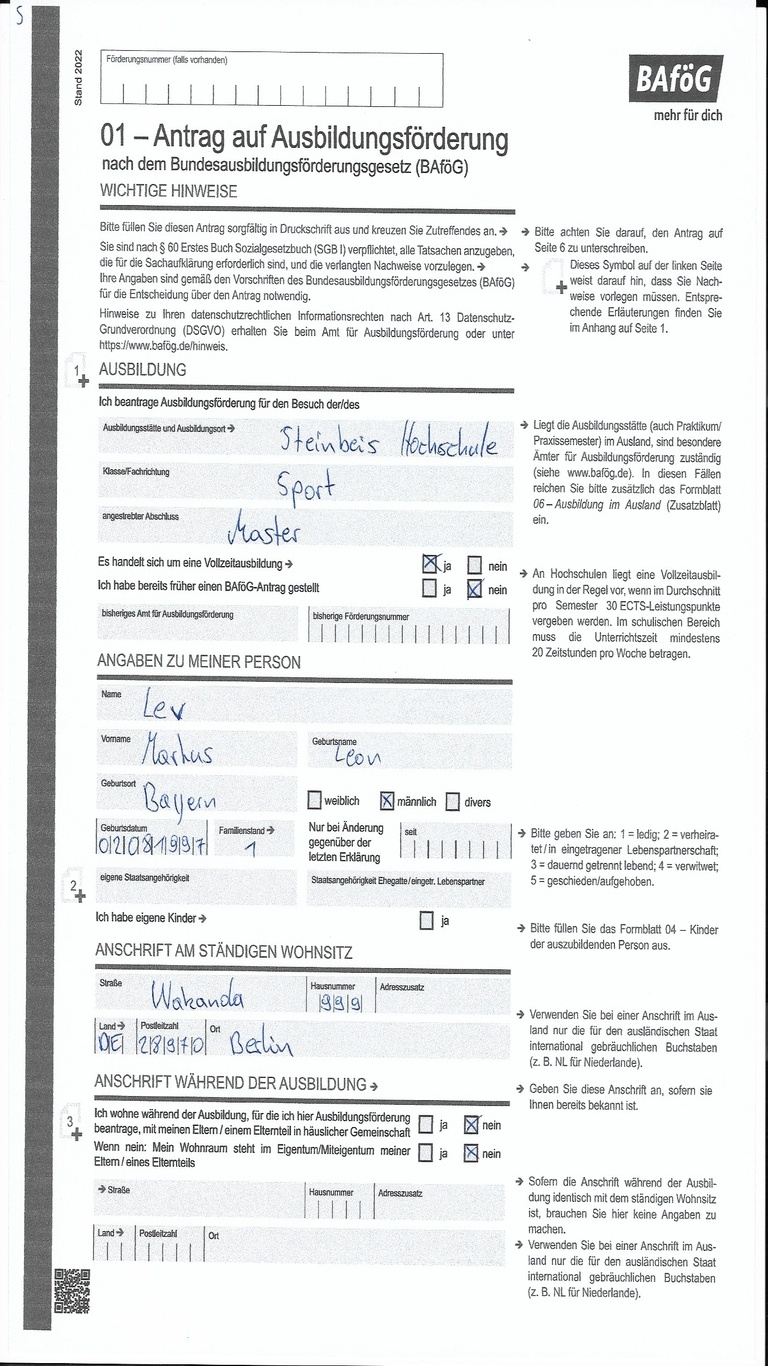 S
Stand 2022
Förderungsnummer (falls vorhanden)
BAföG
mehr für dich
01 – Antrag auf Ausbildungsförderung
nach dem Bundesausbildungsförderungsgesetz (BAföG)
WICHTIGE HINWEISE
Bitte füllen Sie diesen Antrag sorgfältig in Druckschrift aus und kreuzen Sie Zutreffendes an. →
Sie sind nach § 60 Erstes Buch Sozialgesetzbuch (SGB I) verpflichtet, alle Tatsachen anzugeben,
die für die Sachaufklärung erforderlich sind, und die verlangten Nachweise vorzulegen. →
Ihre Angaben sind gemäß den Vorschriften des Bundesausbildungsförderungsgesetzes (BAföG)
für die Entscheidung über den Antrag notwendig.
Hinweise zu Ihren datenschutzrechtlichen Informationsrechten nach Art. 13 Datenschutz-
Grundverordnung (DSGVO) erhalten Sie beim Amt für Ausbildungsförderung oder unter
https://www.bafög.de/hinweis.
→ Bitte achten Sie darauf, den Antrag auf
Seite 6 zu unterschreiben.
→ Dieses Symbol auf der linken Seite
weist darauf hin, dass Sie Nach-
weise vorlegen müssen. Entspre-
chende Erläuterungen finden Sie
im Anhang auf Seite 1.
1 AUSBILDUNG
Ich beantrage Ausbildungsförderung für den Besuch der/des
Ausbildungsstätte und Ausbildungsort → Steinbeis Hochschule
Klasse/Fachrichtung Sport
angestrebter Abschluss Master
Es handelt sich um eine Vollzeitausbildung → ja nein
Ich habe bereits früher einen BAföG-Antrag gestellt ja nein
bisheriges Amt für Ausbildungsförderung bisherige Förderungsnummer
→ Liegt die Ausbildungsstätte (auch Praktikum/
Praxissemester) im Ausland, sind besondere
Ämter für Ausbildungsförderung zuständig
(siehe www.bafög.de). In diesen Fällen
reichen Sie bitte zusätzlich das Formblatt
06 – Ausbildung im Ausland (Zusatzblatt)
ein.
→ An Hochschulen liegt eine Vollzeitausbil-
dung in der Regel vor, wenn im Durchschnitt
pro Semester 30 ECTS-Leistungspunkte
vergeben werden. Im schulischen Bereich
muss die Unterrichtszeit mindestens
20 Zeitstunden pro Woche betragen.
ANGABEN ZU MEINER PERSON
Name Lev
Vorname Markus Geburtsname Leon
Geburtsort Bayern weiblich männlich divers
Geburtsdatum 02081997 Familienstand → 1
Nur bei Änderung
gegenüber der
letzten Erklärung
seit
2 eigene Staatsangehörigkeit Staatsangehörigkeit Ehegatte/eingetr. Lebenspartner
Ich habe eigene Kinder → ja
→ Bitte geben Sie an: 1 = ledig; 2 = verheira-
tet / in eingetragener Lebenspartnerschaft;
3 = dauernd getrennt lebend; 4 = verwitwet;
5 = geschieden/aufgehoben.
→ Bitte füllen Sie das Formblatt 04 – Kinder
der auszubildenden Person aus.
ANSCHRIFT AM STÄNDIGEN WOHNSITZ
Straße Wakanda Hausnummer 999 Adresszusatz
Land → DE Postleitzahl 28970 Ort Berlin
→ Verwenden Sie bei einer Anschrift im Aus-
land nur die für den ausländischen Staat
international gebräuchlichen Buchstaben
(z. B. NL für Niederlande).
ANSCHRIFT WÄHREND DER AUSBILDUNG →
→ Geben Sie diese Anschrift an, sofern sie
Ihnen bereits bekannt ist.
3 Ich wohne während der Ausbildung, für die ich hier Ausbildungsförderung
beantrage, mit meinen Eltern / einem Elternteil in häuslicher Gemeinschaft ja nein
Wenn nein: Mein Wohnraum steht im Eigentum/Miteigentum meiner
Eltern / eines Elternteils ja nein
→ Straße Hausnummer Adresszusatz
Land → Postleitzahl Ort
→ Sofern die Anschrift während der Ausbil-
dung identisch mit dem ständigen Wohnsitz
ist, brauchen Sie hier keine Angaben zu
machen.
→ Verwenden Sie bei einer Anschrift im Aus-
land nur die für den ausländischen Staat
international gebräuchlichen Buchstaben
(z. B. NL für Niederlande).